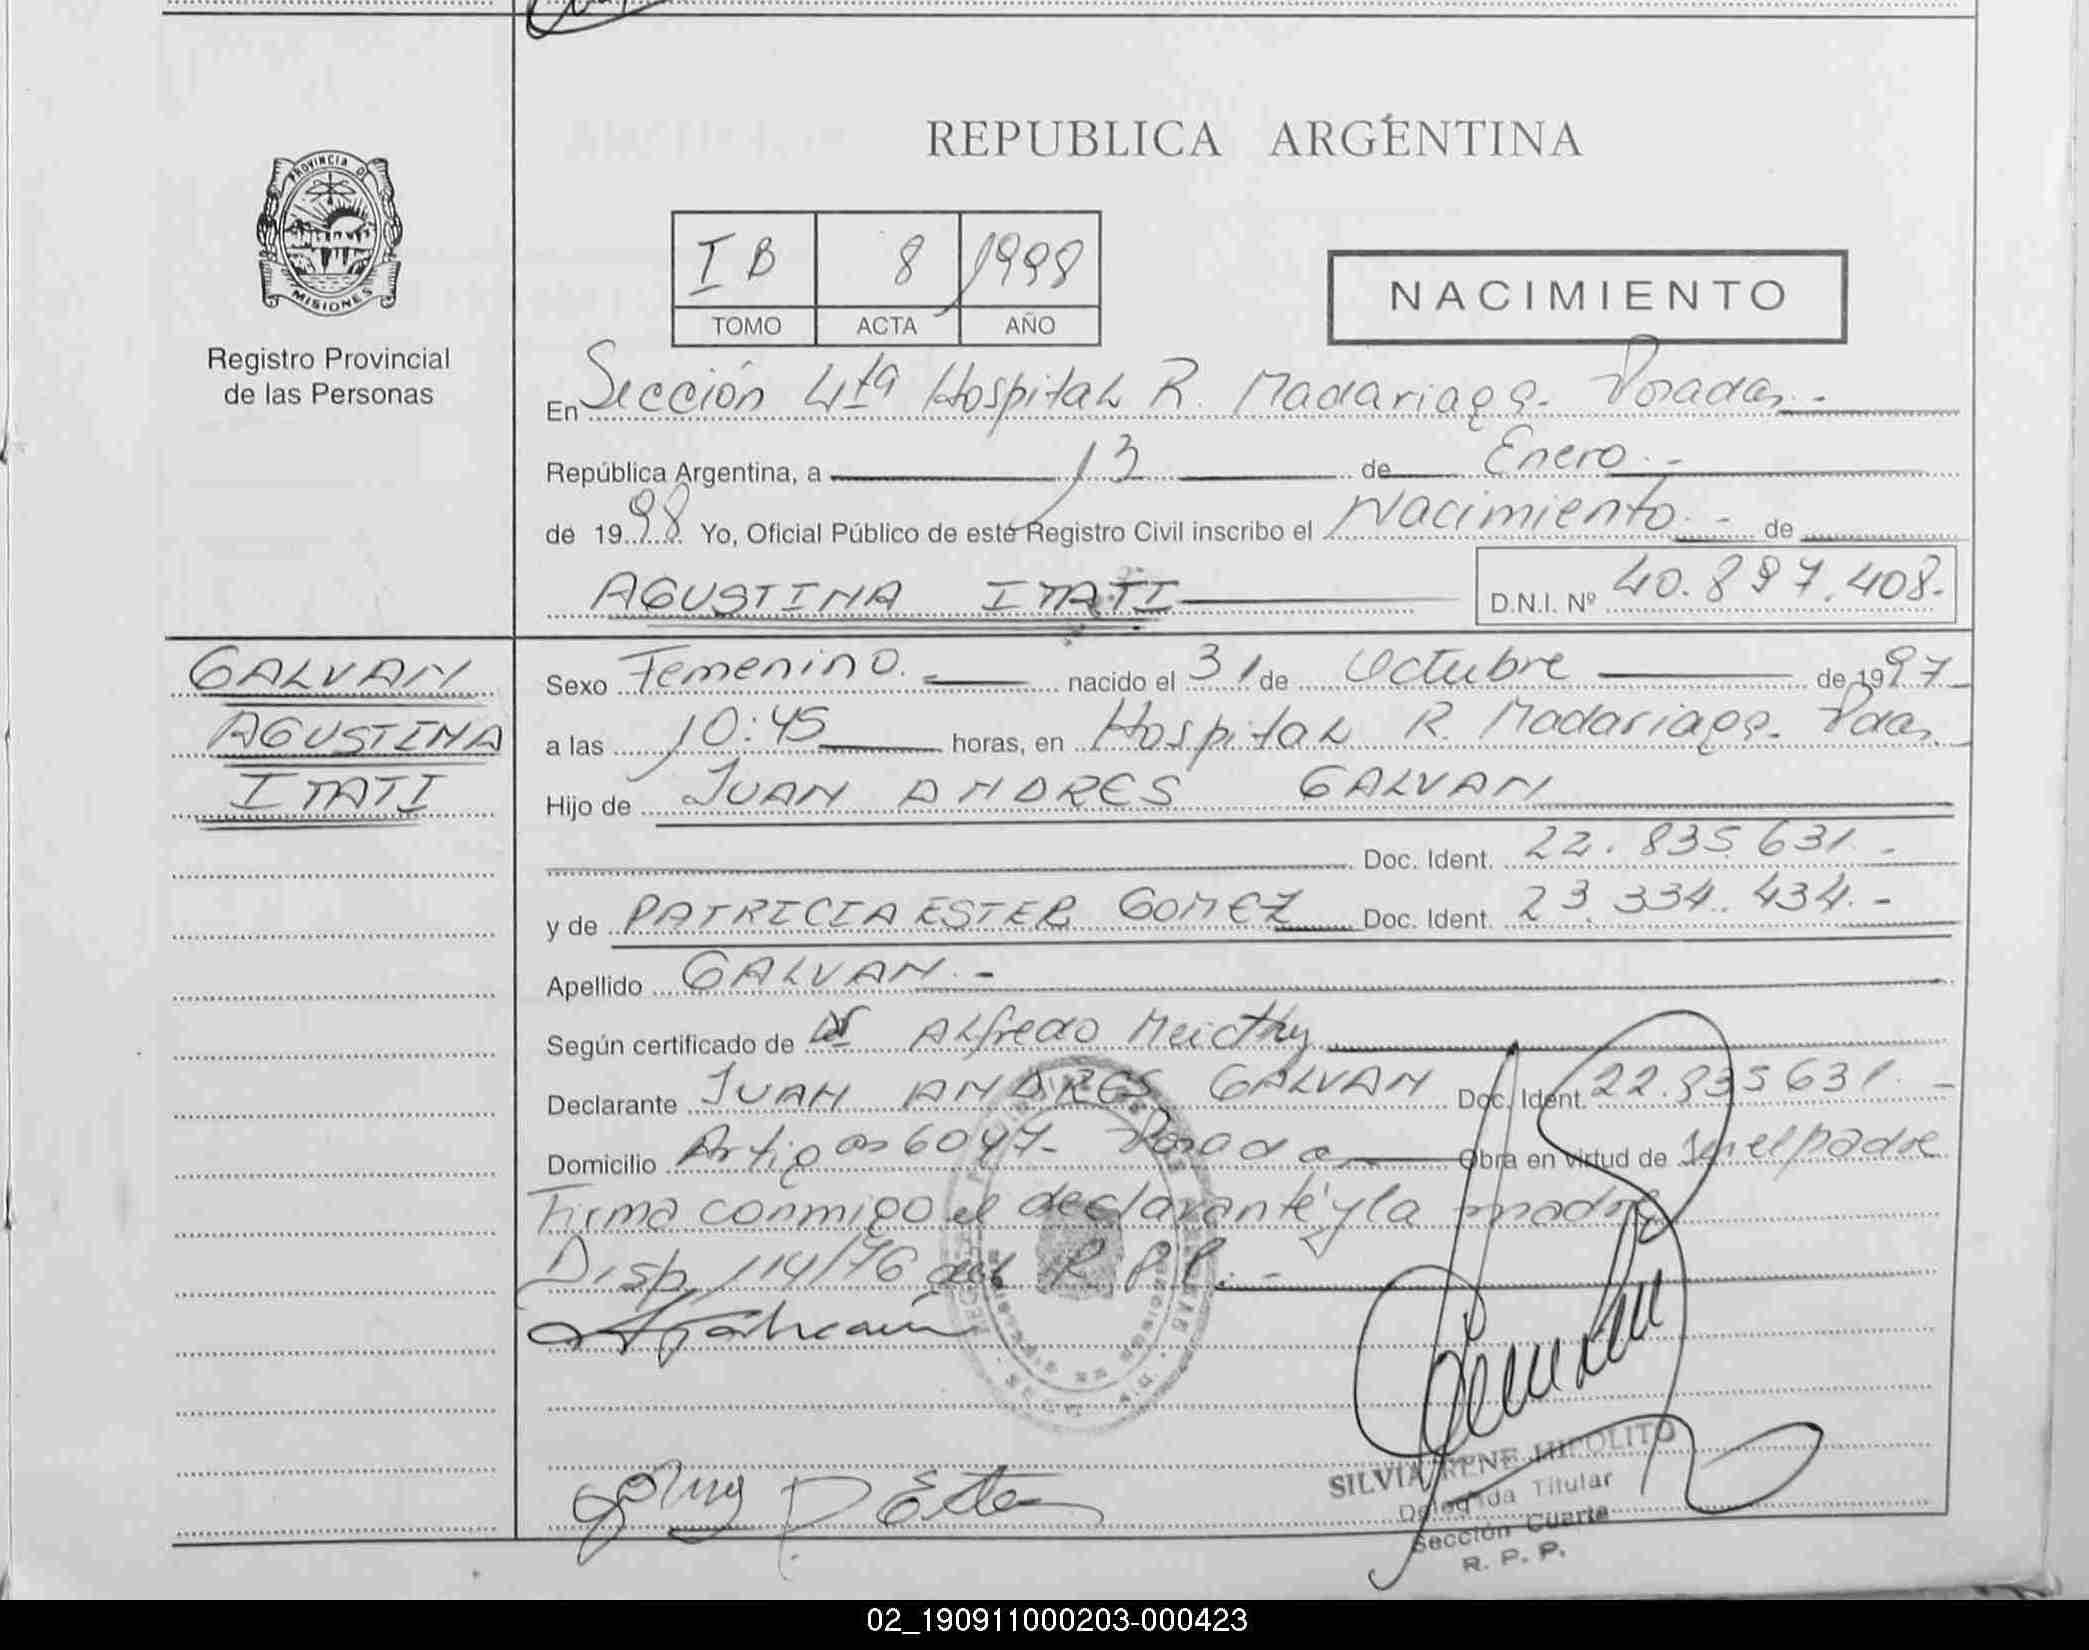 REPUBLICA ARGENTINA
PROVINCIA D
MISIONES
Registro Provincial
de las Personas
I B 8 1998
TOMO ACTA AÑO
NACIMIENTO
En Sección 4ta Hospital R. Madariaga. Posadas.-
República Argentina, a 13 de Enero.-
de 1998 Yo, Oficial Público de este Registro Civil inscribo el Nacimiento.- de
AGUSTINA ITATI
D.N.I. Nº 40.897.408.-
GALVAN
AGUSTINA
ITATI
Sexo Femenino.- nacido el 31 de Octubre de 1997
a las 10:45 horas, en Hospital R. Madariaga. Pdas.
Hijo de JUAN ANDRES GALVAN
Doc. Ident. 22.835.631.-
y de PATRICIA ESTER GOMEZ Doc. Ident. 23.334.434.-
Apellido GALVAN.-
Según certificado de Alfredo
Declarante JUAN ANDRES GALVAN Doc. Ident. 22.835631.-
Domicilio Artigas 6047- Posadas Obra en virtud de el padre
Firma conmigo el declarante y la madre
Disp. 114/76 del R.P.P.-
SILVIA RENE HIPOLITO
Delegada Titular
Sección Cuarta
R. P. P.
02_190911000203-000423